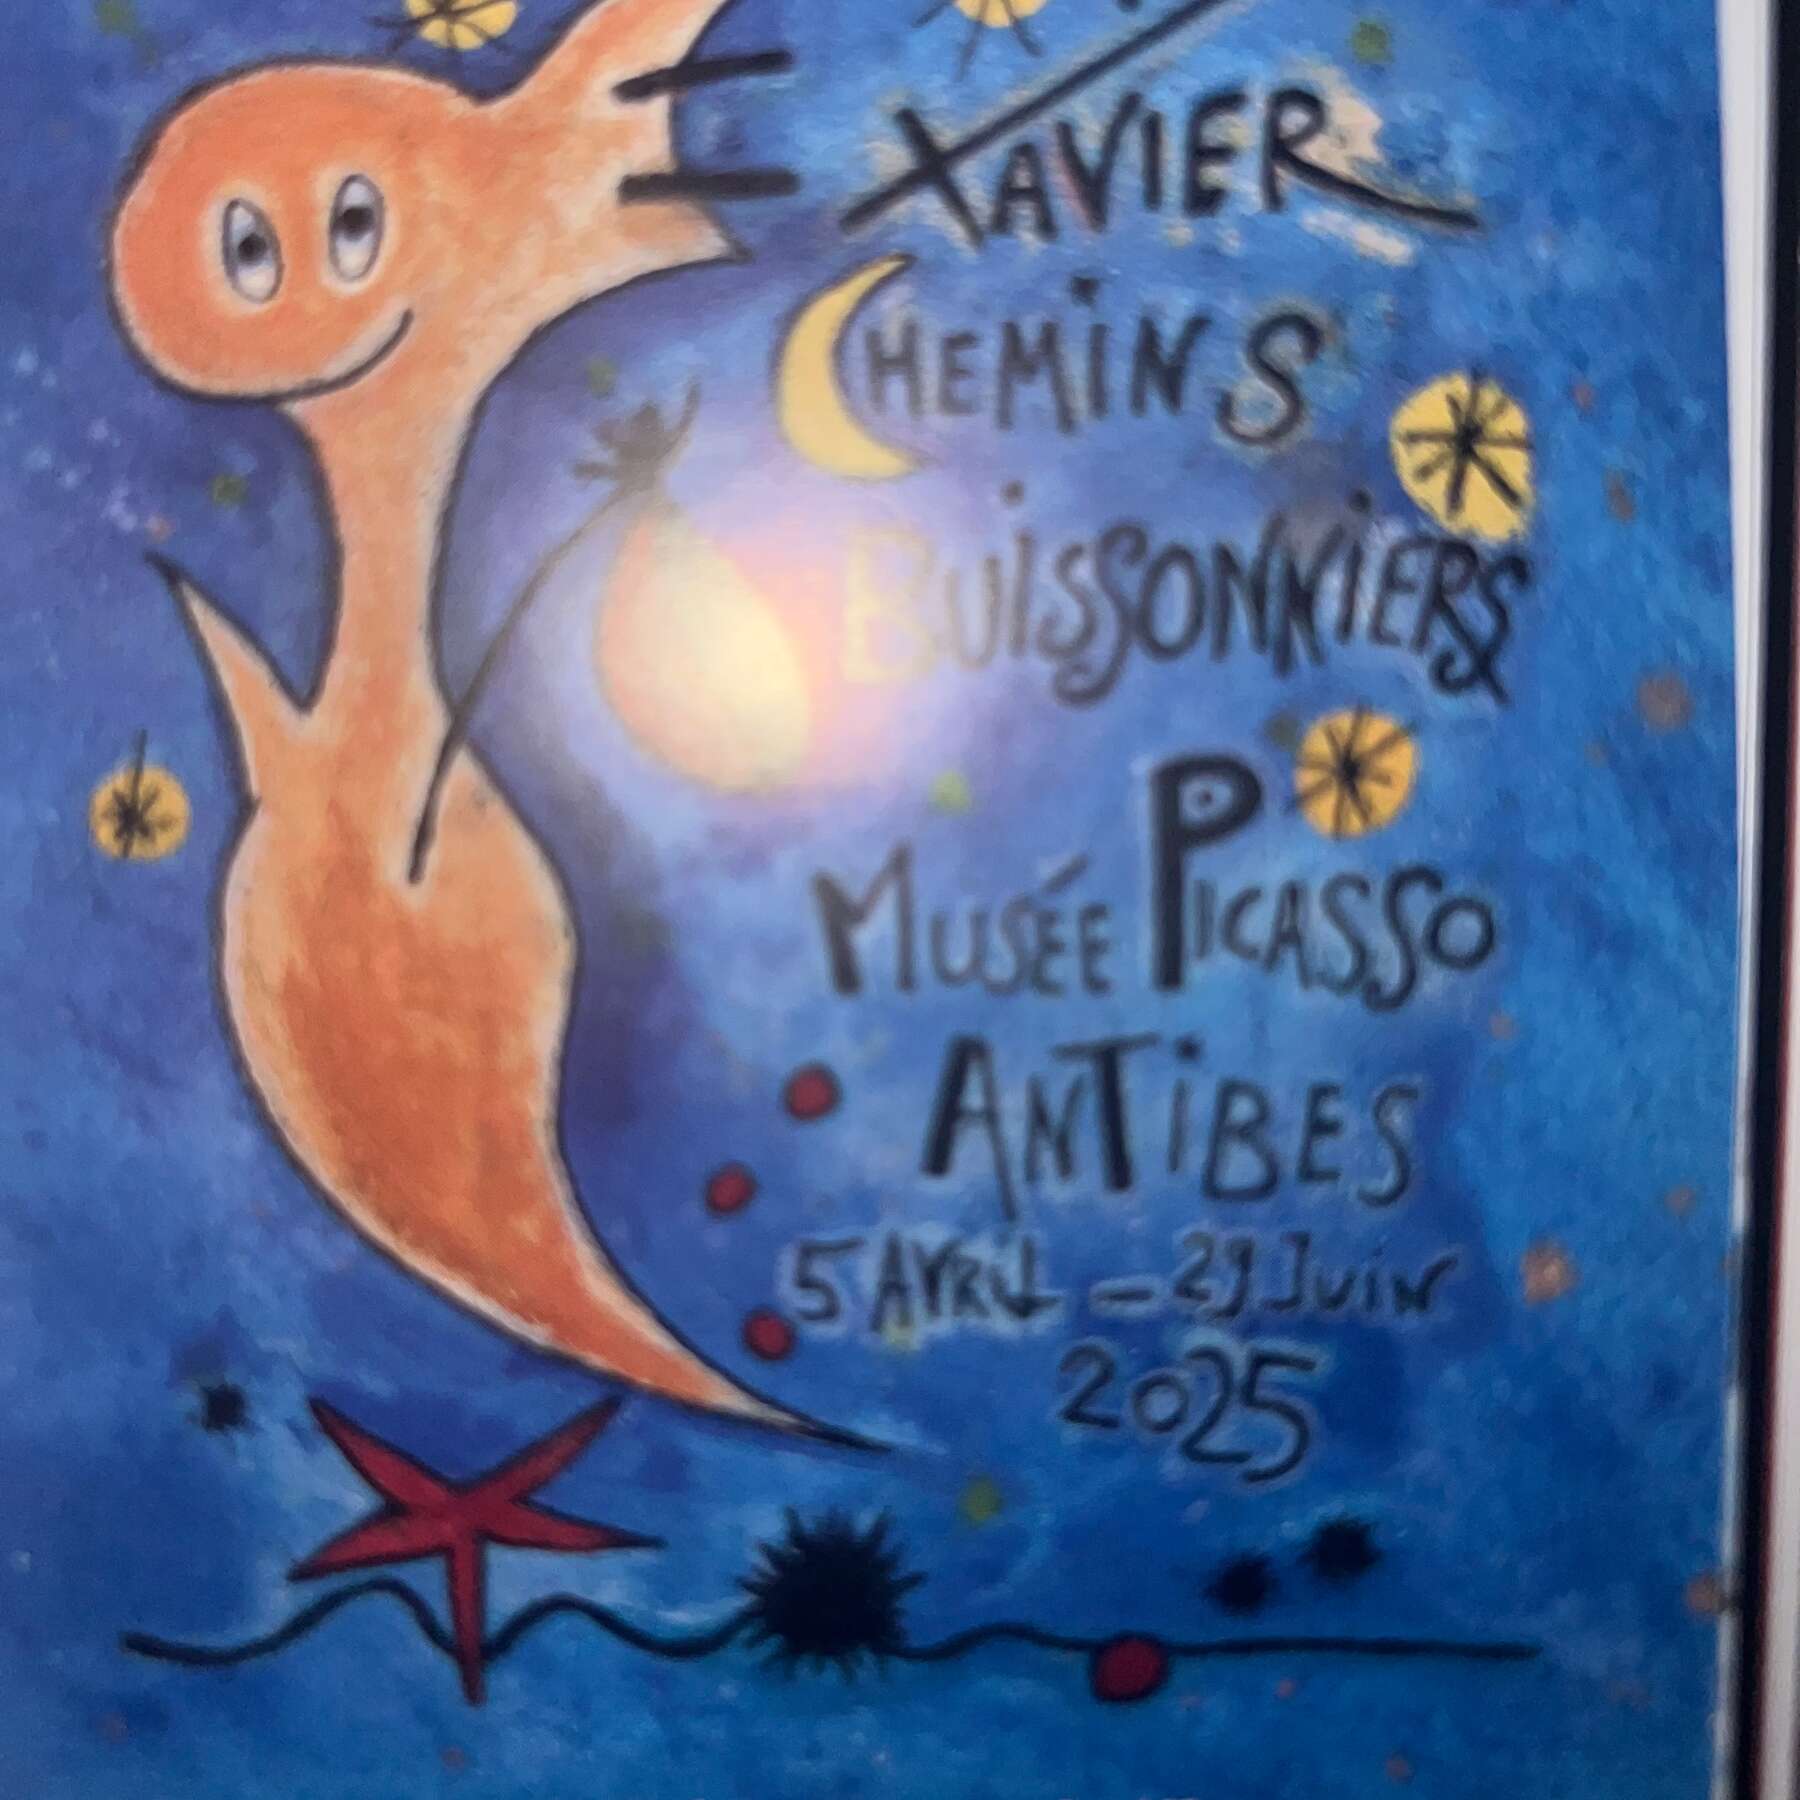 XAVIER
CHEMINS
BUISSONNIERS
MUSÉE PICASSO
ANTIBES
5 AVRIL – 29 JUIN
2025